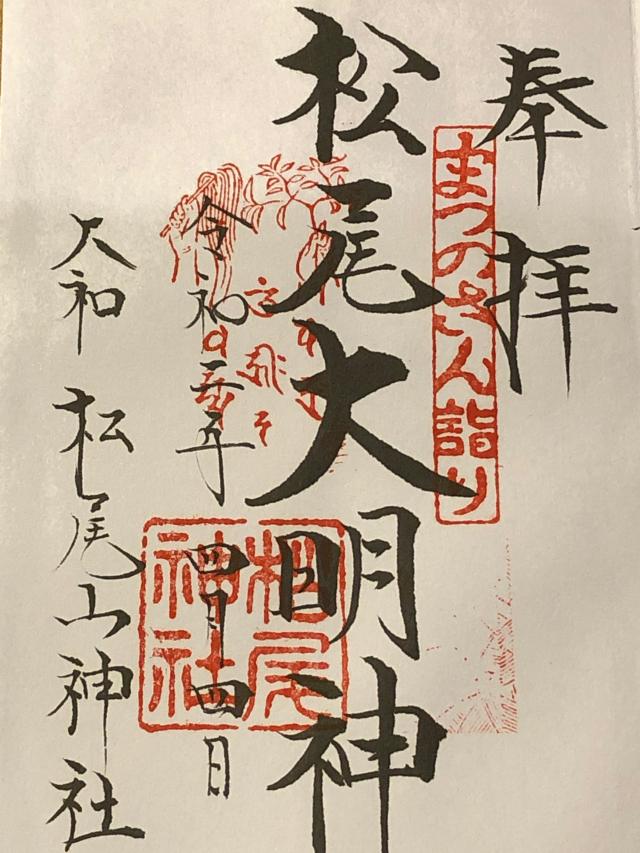 奉拝
まつのさん詣り
松尾大明神
令和三年四月四日
松尾神社
大和 松尾山神社